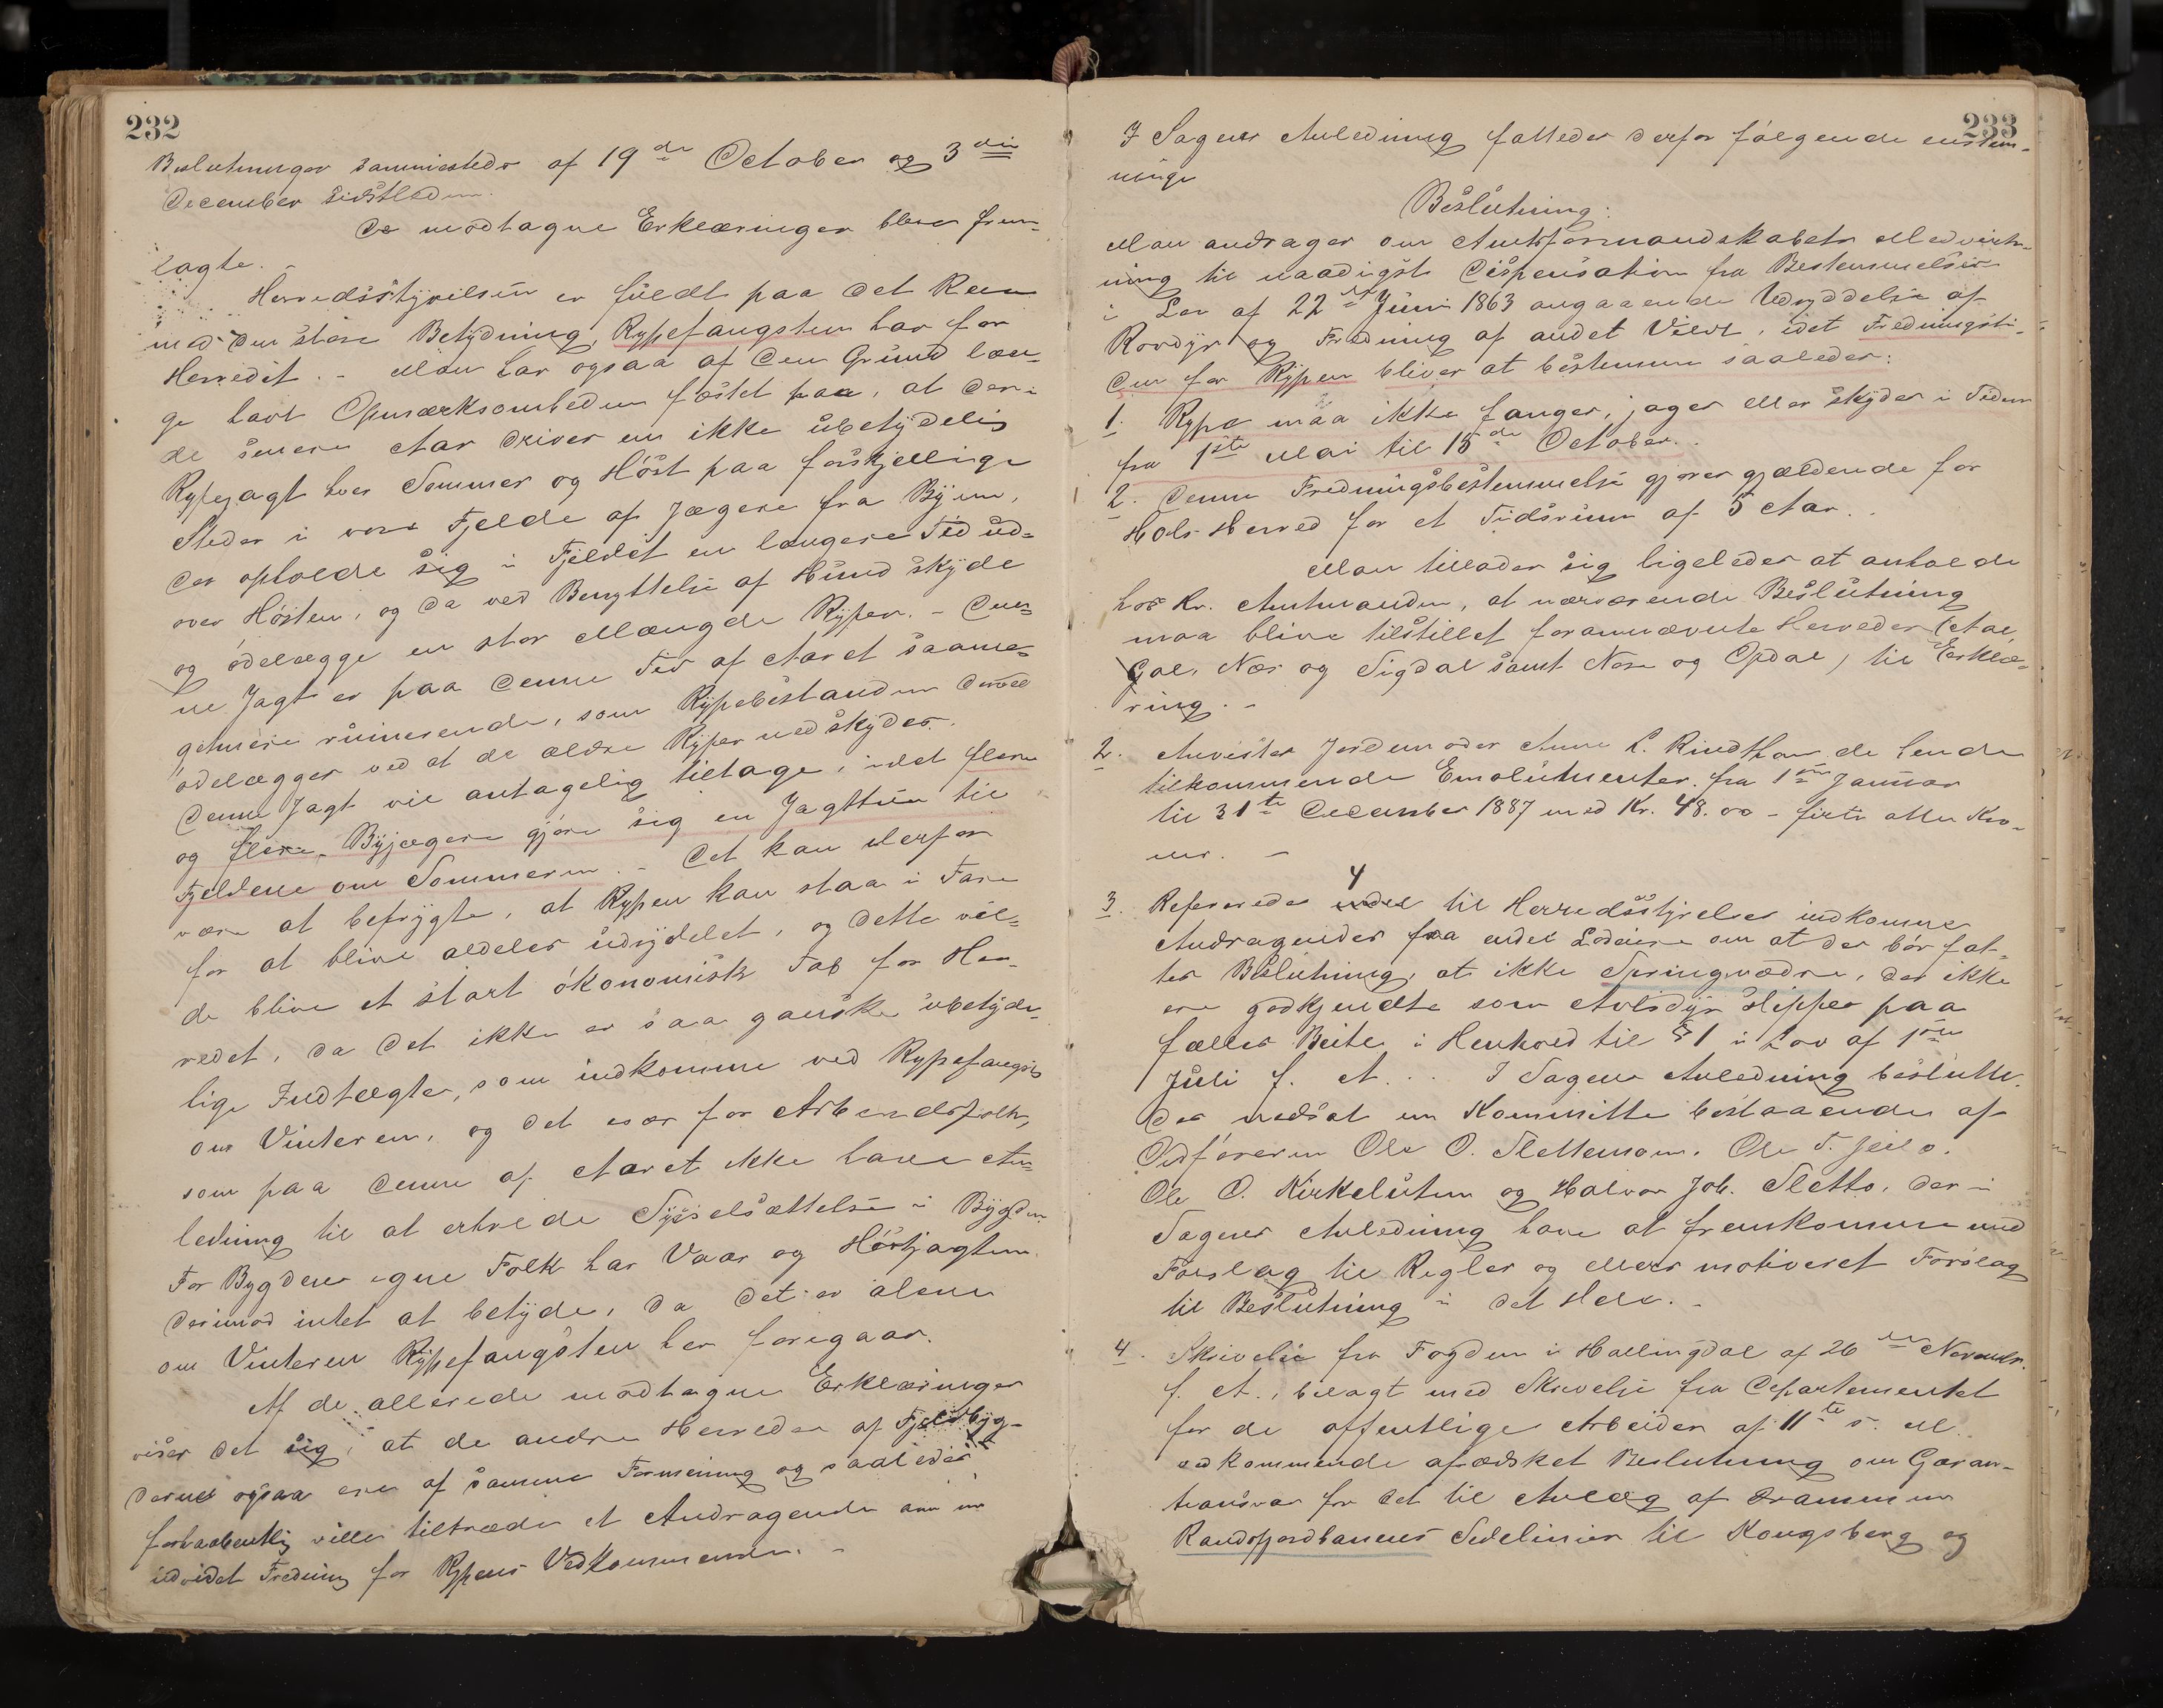 232
Beslutninger sammesteds af 19de October og 3die
December sidstleden.
De modtagne Erklæringer blev frem-
lagte. -
Herredsstyrelsen er fuldt paa det Rene
med den store Betydning, Rypefangsten har for
Herredet. - Man har ogsaa af den Grund læn-
ge havt Opmærksomheden fæstet paa, at der i
de senere Aar drives en ikke ubetydelig
Rypejagt hver Sommer og Høst paa forskjellige
Steder i vore Fjelde af Jægere fra Byen,
der opholde sig i Fjeldet en længere Tid ud-
over Høsten, og da ved Benyttelse af Hund skyde
og ødelægge en stor Mængde Ryper. - Den-
ne Jagt er paa denne Tid af Aaret saame-
get mere ruinerende, som Rypebestanden derved
ødelægges ved at de ældre Ryper nedskydes.
Denne Jagt vil antagelig tiltage, idet flere
og flere Byjægere gjøre sig en Jagttur til
Fjeldene om Sommeren. - Det kan derfor
være at befrygte, at Rypen kan staa i Fare
for at blive aldeles udryddet, og dette vil-
de blive et stort økonomisk Tab for Her-
redet, da det ikke er saa ganske ubetyde-
lige Indtægter, som indkomme ved Rypefangst
om Vinteren, og det især for Arbeidsfolk,
som paa denne af Aaret ikke have An-
ledning til at erholde Sysselsættelse i Bygden.
For Bygdens egne Folk har Vaar og Høstjagten
derimod intet at betyde, da det er alene
om Vinteren Rypefangsten her foregaar.
Af de allerede modtagne Erklæringer
viser det sig, at de andre Herreder af Fjeldbyg-
derne ogsaa ere af samme Formening og saaledes
forhaabentlig ville tiltræde et Andragende om en
udvidet Fredning for Rypens Vedkommende. -
233
I Sagens Anledning fattedes derfor følgende enstem-
mige
Beslutning:
Man andrager om Amtsformandskabets Medvirk-
ning til naadigst Dispensation fra Bestemmelser
i Lov af 22de Juni 1863 angaaende Udryddelse af
Rovdyr og Fredning af andet Vildt, idet Fredningsti-
den for Rypen bliver at bestemme saaledes:
1. Rype maa ikke fanges, jages eller skydes i Tiden
fra 1ste Mai til 15de October.
2. Denne Fredningsbestemmelse gjøres gjældende for
Hols Herred for et Tidsrum af 5 Aar.
Man tillader sig ligeledes at anholde
hos Hr. Amtmanden, at nærværende Beslutning
maa blive tilstillet forannævnte Herreder (Aal,
Gol, Næs og Sigdal samt Nore og Opdal) til Erklæ-
ring. -
2. Anvistes Jordemoder Anne L. Rindthor de hende
tilkommende Emolumenter fra 1ste Januar
til 31te December 1887 med Kr. 48.00 - firti otte Kro-
ner. -
3. Refereredes 4 til Herredsstyrelsen indkomne
Andragender fra endel Lodeiere om at der bør fat-
tes Beslutning, at ikke Springvædre, der ikke
ere godkjendte som Avlsdyr slippes paa
fælles Beite i Henhold til § 1 i Lov af 1ste
Juli f. A. I Sagens Anledning beslutte-
des nedsat en Kommitte bestaaende af
Ordføreren Ole O. Slettemoen, Ole T. Jeilo,
Ole O. Kirkeluten og Halvor Joh. Sletto, der i
Sagens Anledning have at fremkomme med
Forslag til Regler og ellers motiveret Forslag
til Beslutning i det Hele. -
4. Skrivelse fra Fogden i Hallingdal af 26de Novembr.
f. A., bilagt med Skrivelse fra Departementet
for de offentlige Arbeider af 11te s. M.
vedkommende afæsket Beslutning om Garan-
tiansvar for det til Anlæg af Drammen
Randsfjordbanens Sidelinier til Kongsberg og